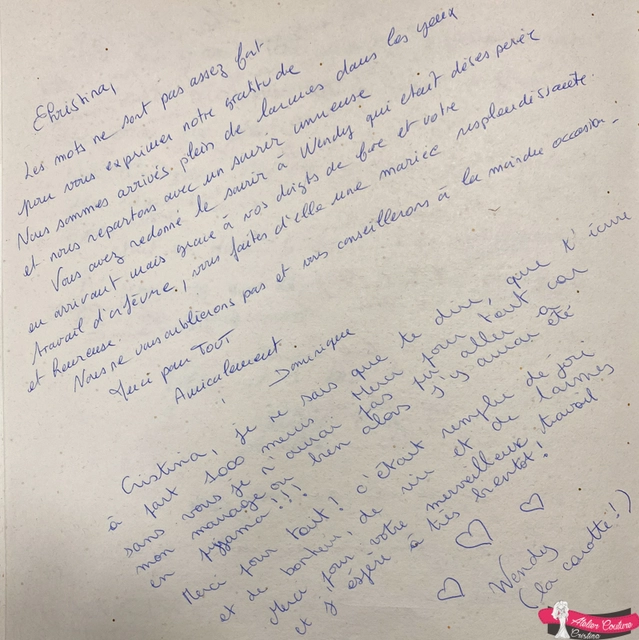 Christina,
Les mots ne sont pas assez fort
pour vous exprimer notre gratitude
Nous sommes arrivés plein de larmes dans les yeux
et nous repartons avec un sourir immense
Vous avez redonné le sourir à Wendy qui etait désesperée
en arrivant mais grace à vos doigts de fée et votre
travail d'orfèvre, vous faites d'elle une mariée resplendissante
et heureuse.
Nous ne vous oublierons pas et vous conseillerons à la moindre occasion.
Merci pour TOUT
Amicalement
Dominique
Cristina, je ne sais que te dire, que t'écrire
à part 1000 mercis. Merci pour tout car
sans vous je n'aurai pas pu aller a
mon mariage ou bien alors j'y aurai été
en pyjama !!!
Merci pour tout ! c'était remplie de joie
et de bonheur, de rire et de larmes
Merci pour votre merveilleux travail
et j'éspère à très bientôt !
Wendy
(la carotte !)
Atelier Couture
Cristina